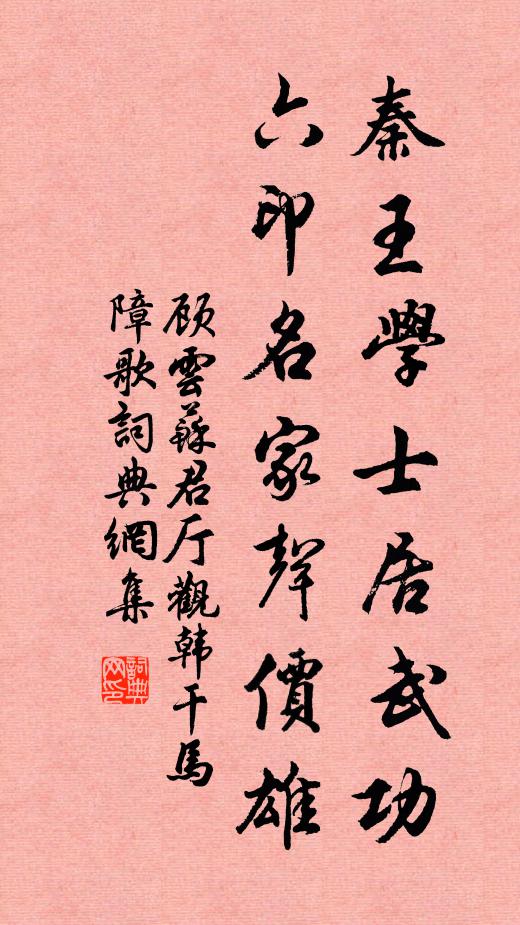 秦王學士居武功
六印名家聲價雄
顾雲蘇君厅觀韩干馬
障歌詞典網集
詞典网印